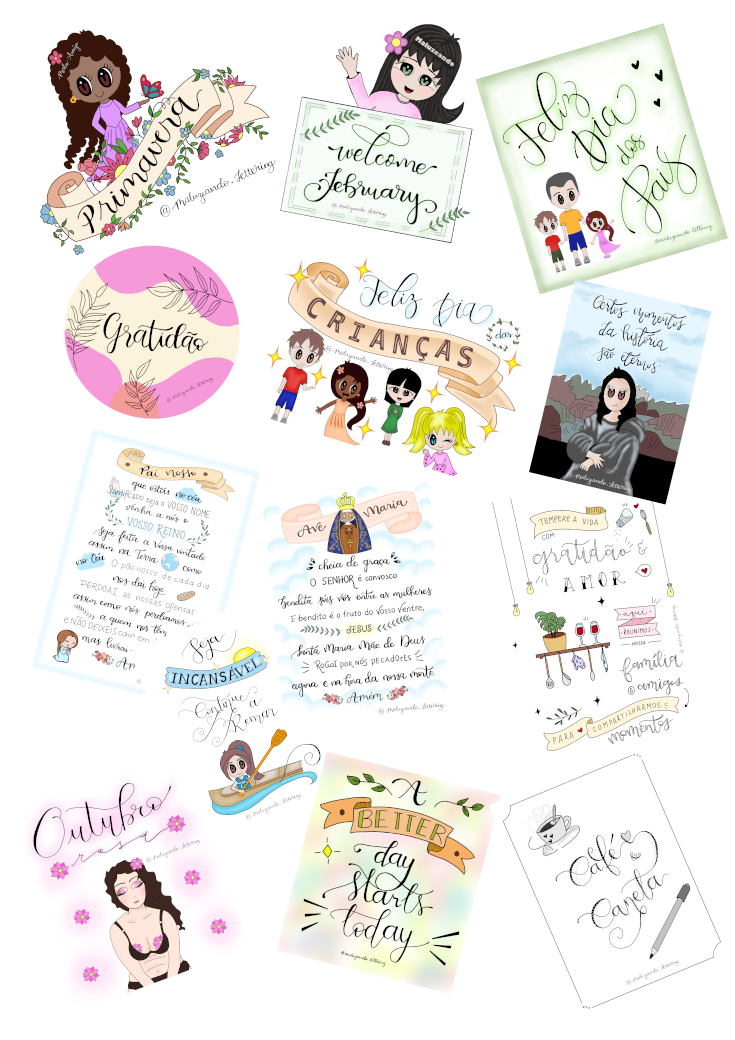 Primavera
@maluzeando.lettering
Maluzeando
welcome
February
@maluzeando.lettering
Feliz
Dia
dos
Pais
@maluzeando.lettering
Gratidão
@maluzeando.lettering
Feliz Dia
das
CRIANÇAS
@maluzeando.lettering
Certos momentos
da história
são eternos
@maluzeando.lettering
Pai Nosso
que estás no céu
ficado seja o VOSSO NOME
venha a nós o
VOSSO REINO
Seja feita a Vossa vontade
assim na Terra como
no Céu
O pão nosso de cada dia
nos dai hoje
PERDOAI as nossas ofensas
assim como nós perdoamos
a quem nos tem
E NÃO DEIXEIS cair em
mas livrai
Am
Avé Maria
cheia de graça
O SENHOR é convosco
bendita sóis vós entre as mulheres
E bendito é o fruto do Vosso ventre,
JESUS
Santa Maria Mãe de Deus
ROGAI POR NÓS PECADORES
agora e na hora da nossa morte
Amém
@maluzeando.lettering
TEMPERE A VIDA
COM
gratidão &
AMOR
aqui
REUNIMOS
NOSSA
família
& amigos
PARA COMPARTILHARMOS
momentos
Seja
INCANSÁVEL
Continue
e a
Remar
@maluzeando.lettering
Outubro
rosa
@maluzeando.lettering
A
BETTER
day
starts
today
@maluzeando.lettering
Café
Caneta
@maluzeando.lettering